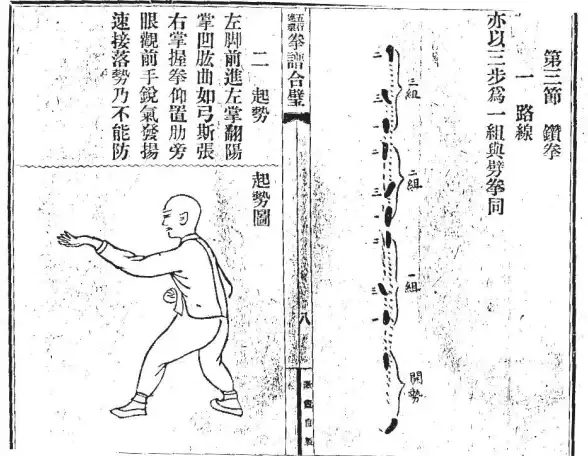 第三節 鑽拳
一 路線
亦以三步爲一組與劈拳同
三組
二組
一組
開勢
二
三
一
二
三
一
二
三
一
五行連環拳譜合璧
八
二 起勢
左脚前進左掌翻陽
掌凹肱曲如弓斯張
右掌握拳仰置肋旁
眼觀前手銳氣發揚
速接落勢乃不能防
起勢圖